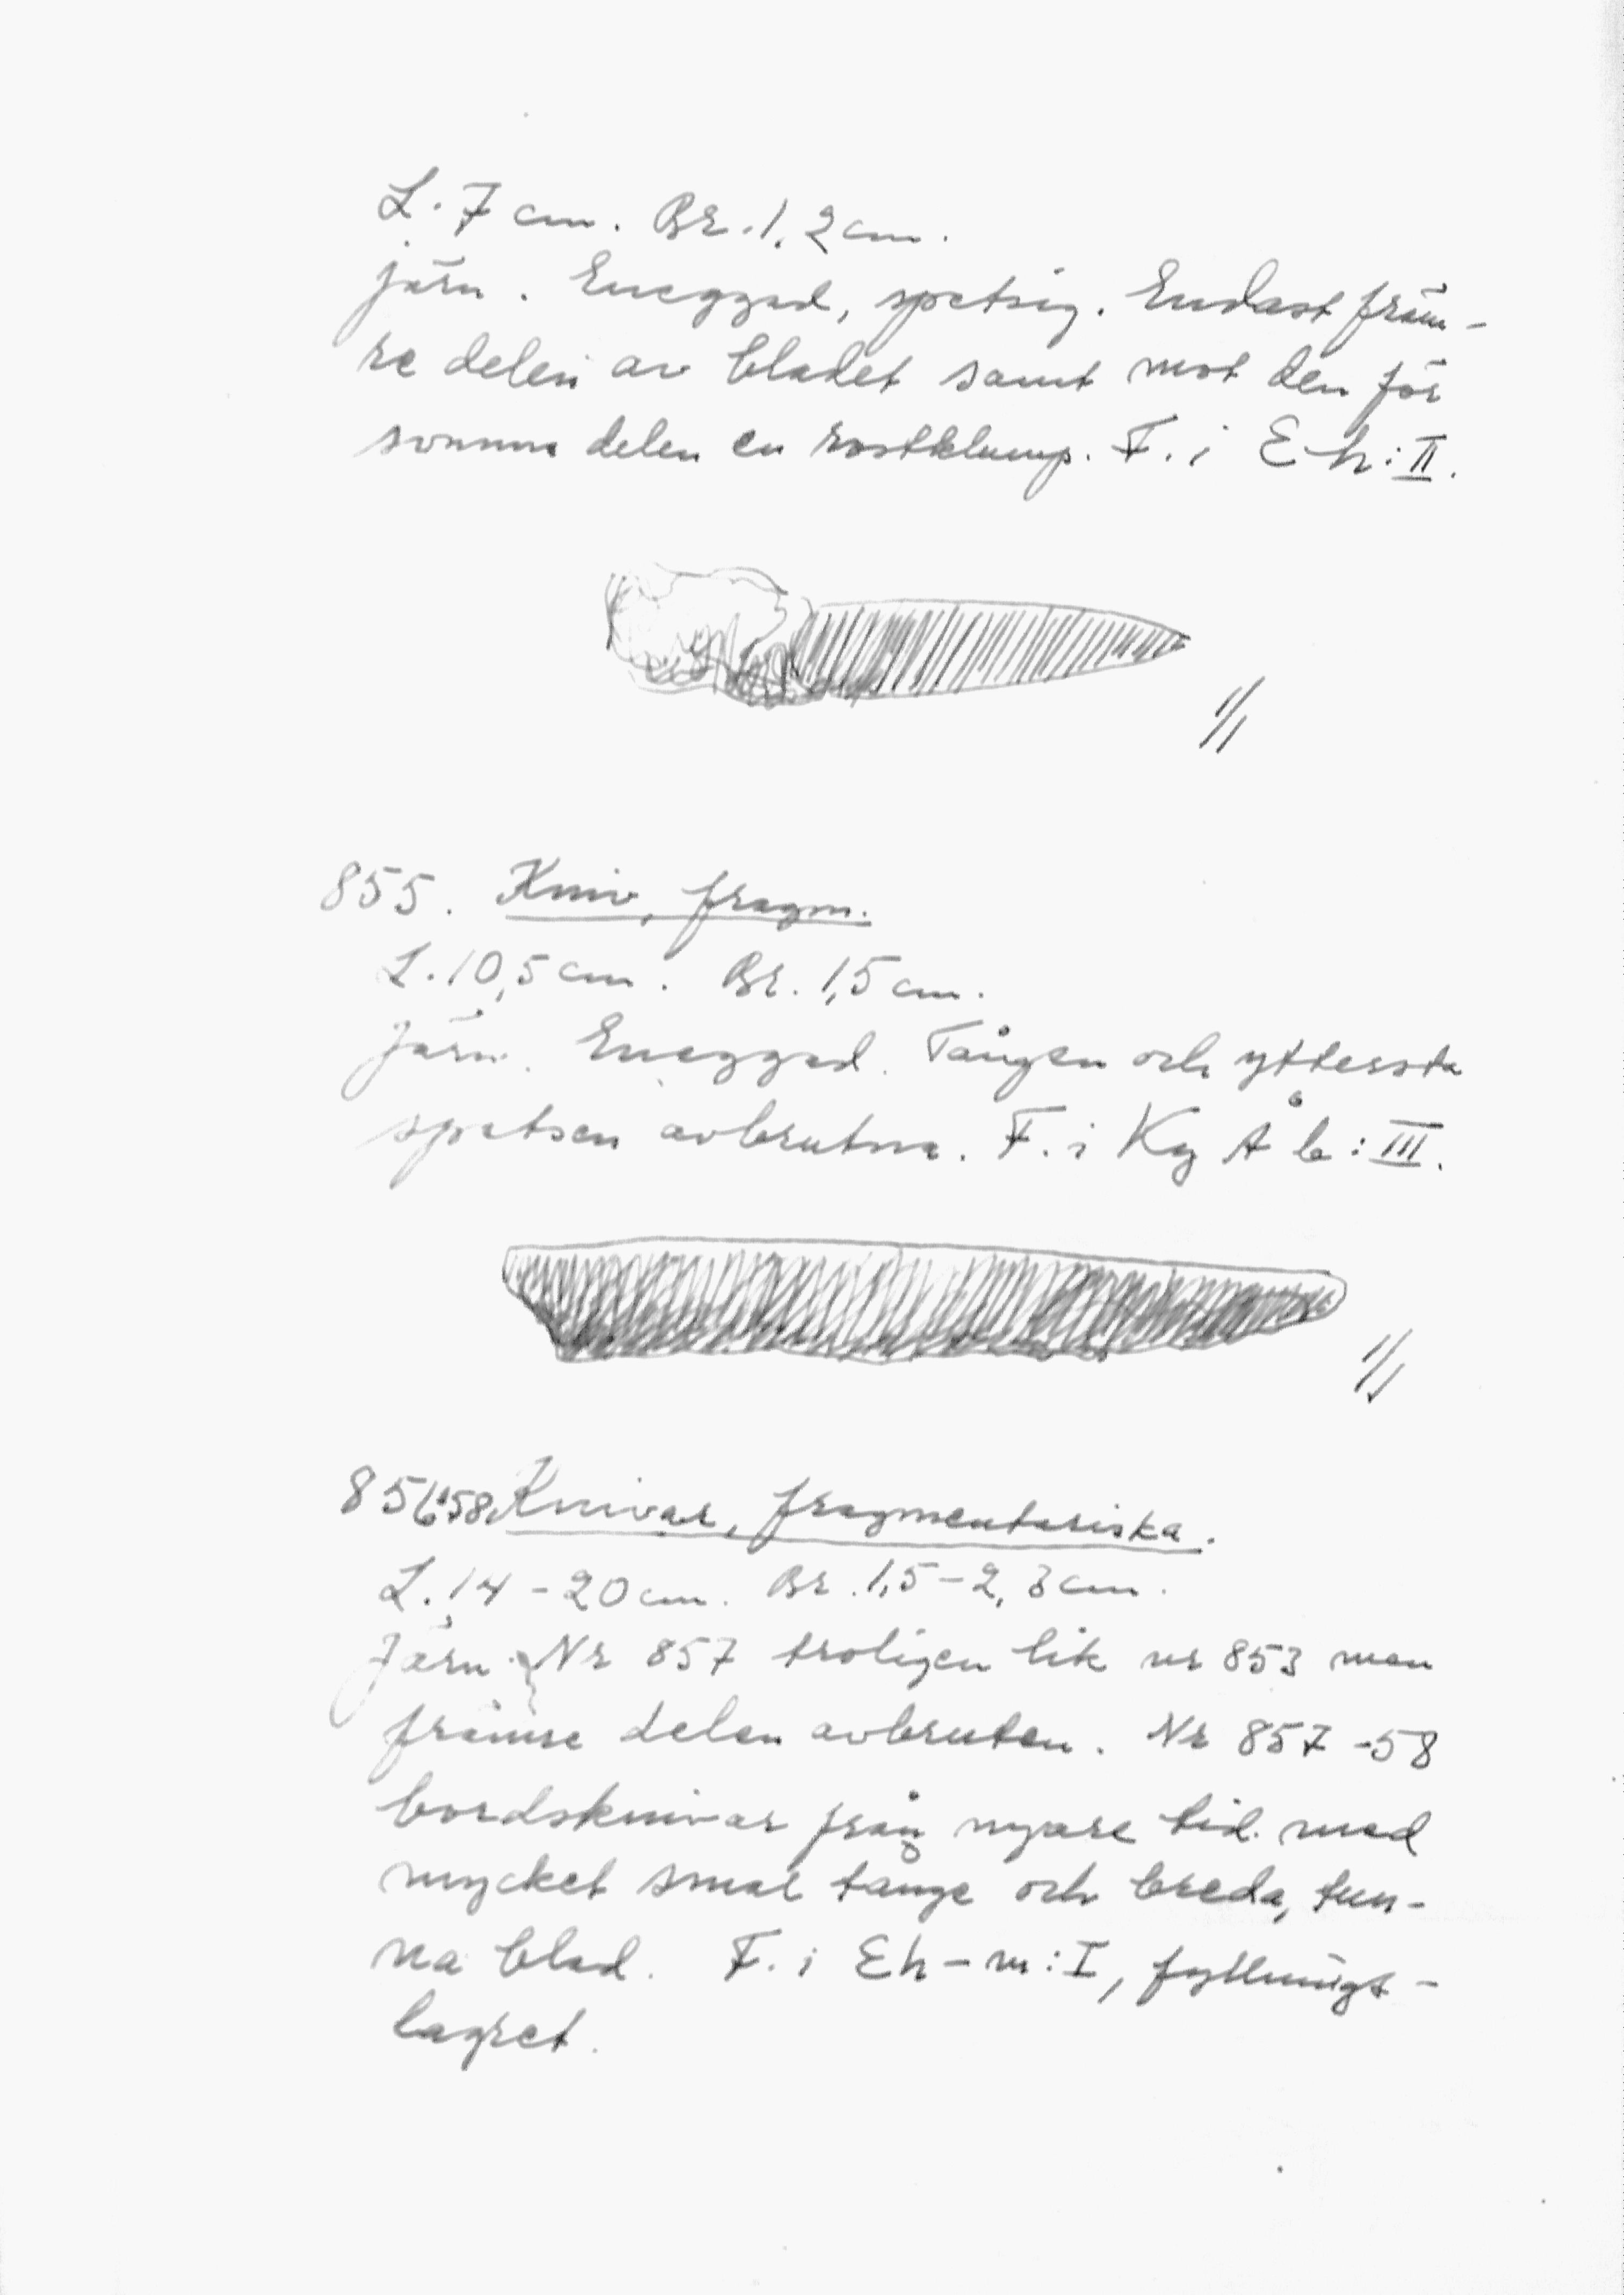 L. 7 cm. Br. 1,2 cm.
Järn. Eneggad, spetsig. Endast främ-
re delen av bladet samt mot den för
svunna delen en rostklump. F. i E-h:II.
1/1
855. Kniv, fragm.
L. 10,5 cm. Br. 1,5 cm.
Järn. Eneggad. Tången och yttersta
spetsen avbrutna. F. i Kg Å b:III.
1/1
856-58. Knivar, fragmentariska.
L. 14-20 cm. Br. 1,5-2,3 cm.
Järn. Nr 857 troligen lik nr 853 men
främre delen avbruten. Nr 857-58
bordsknivar från nyare tid med
mycket smal tånge och breda, tun-
na blad. F. i Eh-m:I, fyllnings-
lagret.